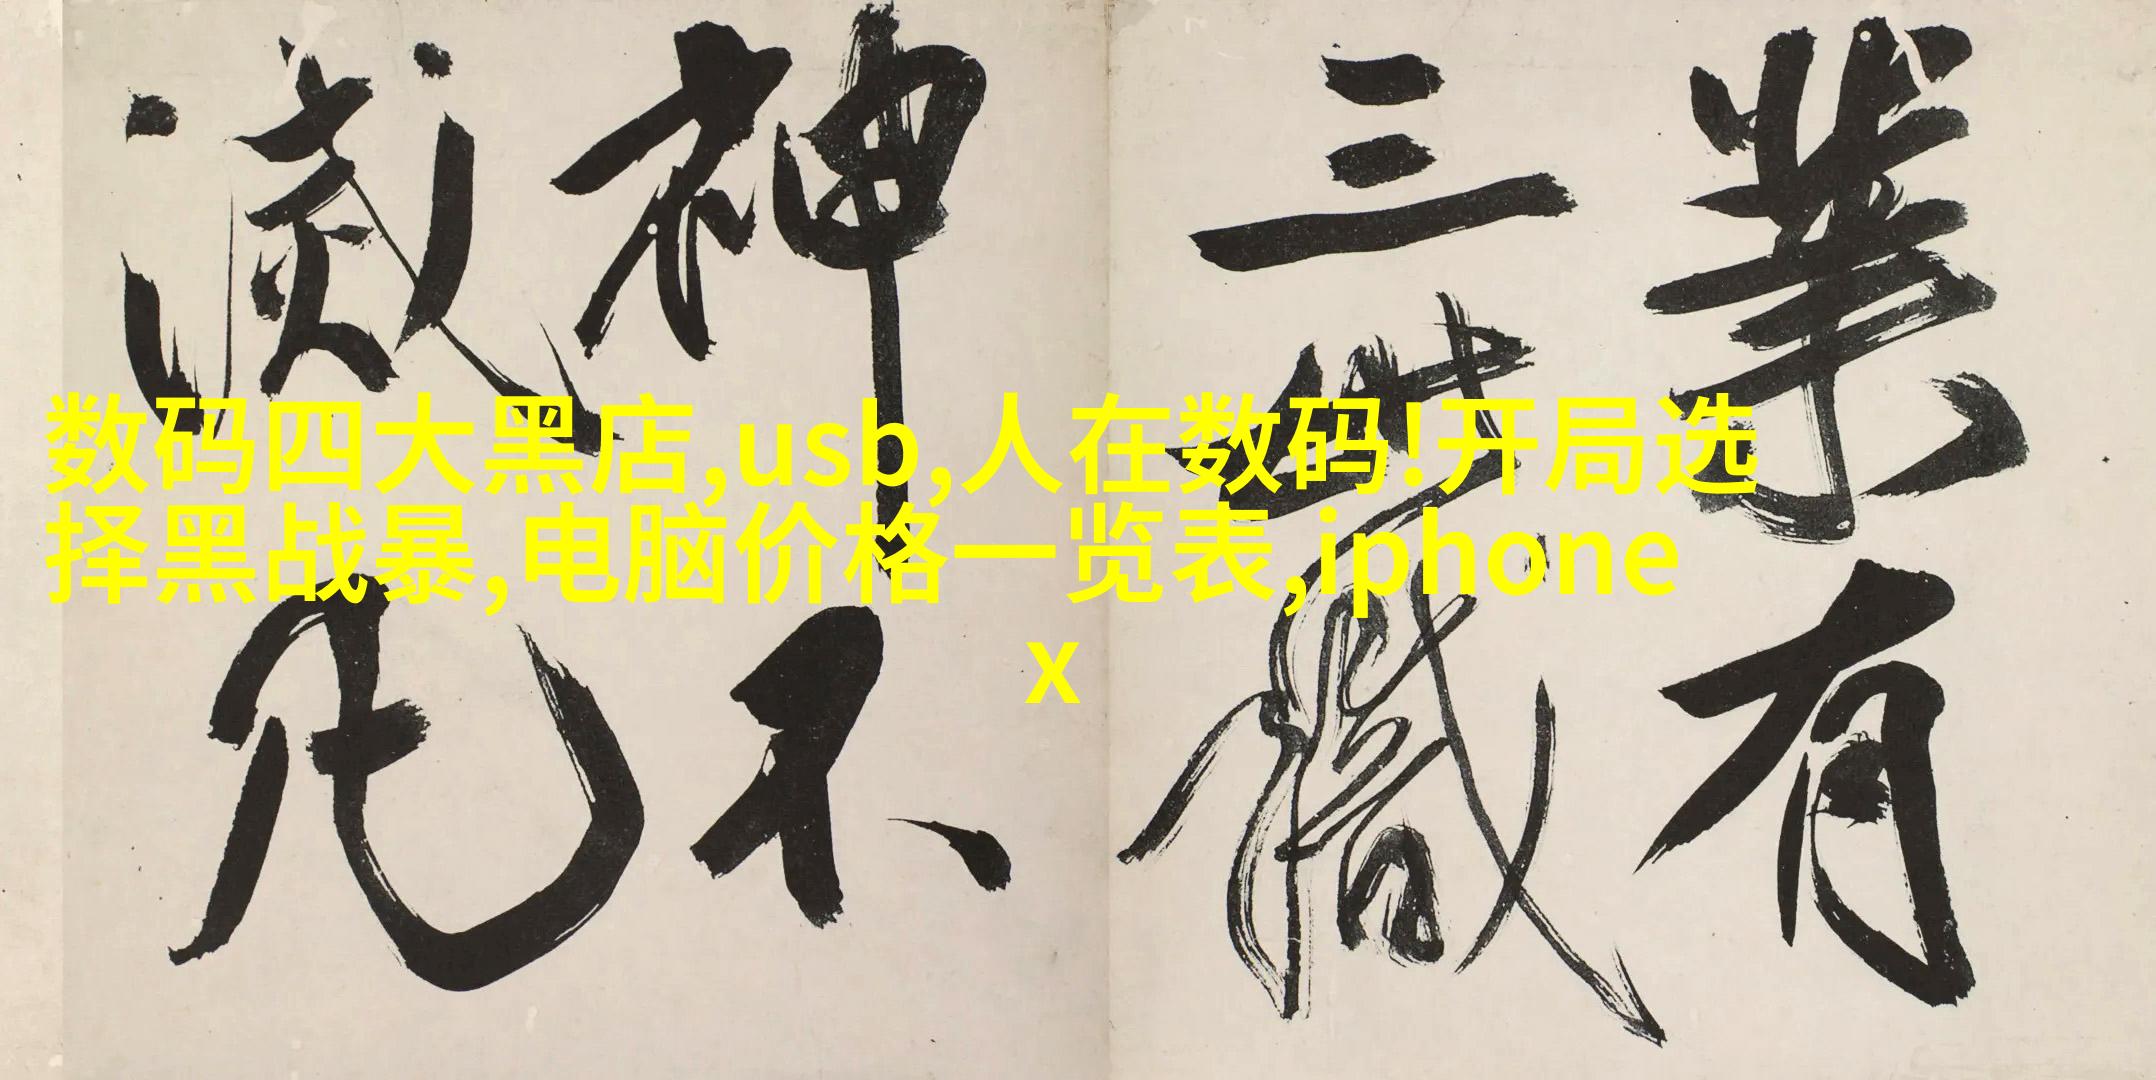 業有
三世職
神不
滅
数码四大黑店,usb,人在数码!开局选
择黑战暴,电脑价格一览表,iphone
x